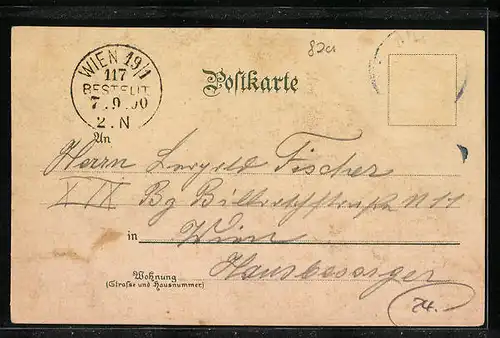 WIEN 19/1
117
BESTELLT
7.9.00
2.N
Postkarte
An
Herrn Leopold Fischer
XIX Bg N 11
in Wien
Hausbesorger
Wohnung
(Straße und Hausnummer)
74.